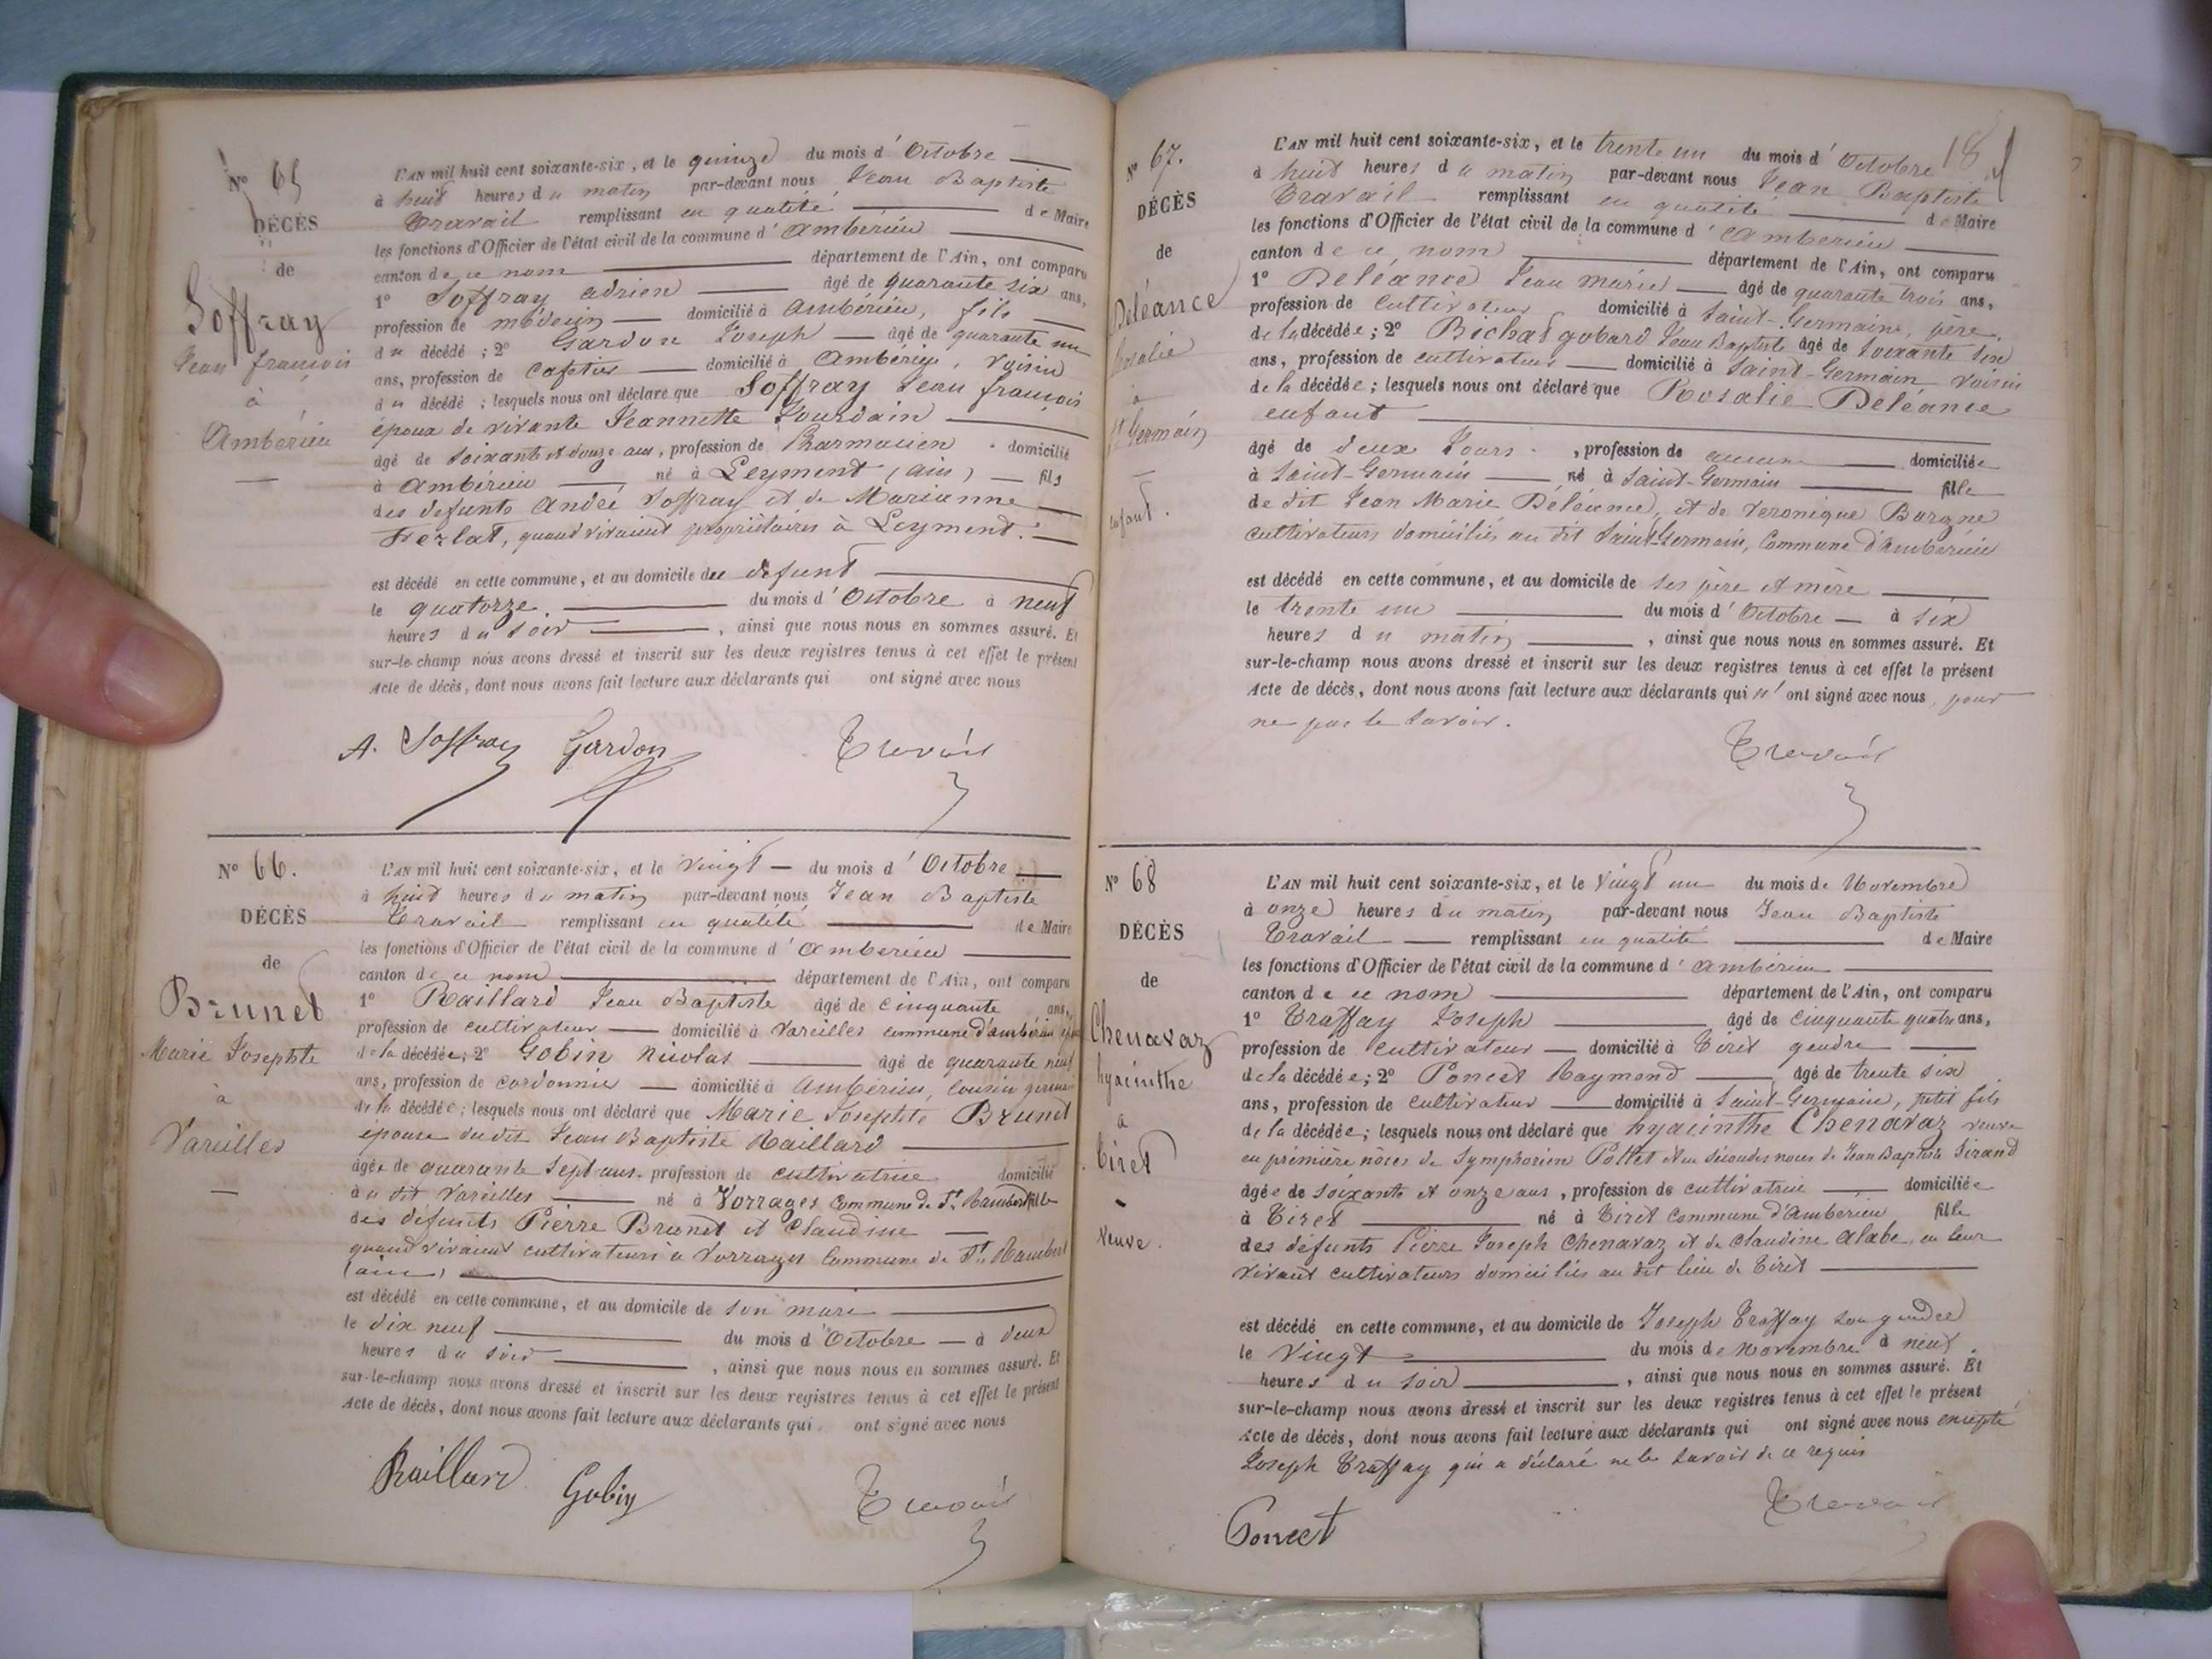 N° 65
DÉCÈS
de
Soffray
Jean françois
à
Ambérieu
L'AN mil huit cent soixante-six, et le quinze du mois d'Octobre
à huit heures du matin par-devant nous Jean Baptiste
Travail remplissant en qualité de Maire
les fonctions d'Officier de l'état civil de la commune d'Ambérieu
canton de ce nom département de l'Ain, ont comparu
1° Soffray adrien âgé de quarante six ans,
profession de médecin domicilié à Ambérieu, fils
du décédé ; 2° Gardon Joseph âgé de quarante un
ans, profession de Cafetier domicilié à Ambérieu, voisin
du décédé ; lesquels nous ont déclaré que Soffray Jean françois
époux de vivante Jeannette Jourdain
âgé de soixante et douze ans, profession de Pharmacien domicilié
à Ambérieu né à Leyment (ain) fils
des defunts André Soffray et de Marianne
Ferlat, quand vivaient propriétaires à Leyment.
est décédé en cette commune, et au domicile du defunt
le quatorze du mois d'Octobre à neuf
heures du soir , ainsi que nous nous en sommes assuré. Et
sur-le-champ nous avons dressé et inscrit sur les deux registres tenus à cet effet le présent
Acte de décès, dont nous avons fait lecture aux déclarants qui ont signé avec nous
A. Soffray Gardon Travail
N° 66.
DÉCÈS
de
Brunet
Marie Josephte
à
Vareilles
L'AN mil huit cent soixante-six, et le vingt du mois d'Octobre
à huit heures du matin par-devant nous Jean Baptiste
Travail remplissant en qualité de Maire
les fonctions d'Officier de l'état civil de la commune d'Amberieu
canton de ce nom département de l'Ain, ont comparu
1° Raillard Jean Baptiste âgé de cinquante ans,
profession de cultivateur domicilié à Vareilles commune d'ambérieu
de la décédée ; 2° Gobin Nicolas âgé de quarante neuf
ans, profession de cordonnier domicilié à Ambérieu, cousin germain
de la décédée ; lesquels nous ont déclaré que Marie Josephte Brunet
épouse du dit Jean Baptiste Raillard
âgée de quarante sept ans, profession de cultivatrice domicilié
à u dit Vareilles né à Vorrages Commune de St. Rambert fille
des défunts Pierre Brunet et Claudine
quand vivaient cultivateurs à Vorrages Commune de St. Rambert
(ain)
est décédé en cette commune, et au domicile de son mari
le dix neuf du mois d'Octobre à deux
heures du soir , ainsi que nous nous en sommes assuré. Et
sur-le-champ nous avons dressé et inscrit sur les deux registres tenus à cet effet le présent
Acte de décès, dont nous avons fait lecture aux déclarants qui ont signé avec nous
Raillard Gobin Travail
18
N° 67.
DÉCÈS
de
Deléance
Rosalie
à
St Germain
enfant.
L'AN mil huit cent soixante-six, et le trente un du mois d'Octobre
à huit heures du matin par-devant nous Jean Baptiste
Travail remplissant en qualité de Maire
les fonctions d'Officier de l'état civil de la commune d'Amberieu
canton de ce nom département de l'Ain, ont comparu
1° Deléance Jean marie âgé de quarante trois ans,
profession de Cultivateur domicilié à Saint-Germain, père
de la décédée ; 2° Bichat gobard Jean Baptiste âgé de soixante six
ans, profession de cultivateur domicilié à Saint-Germain voisin
de la décédée ; lesquels nous ont déclaré que Rosalie Deléance
enfant
âgé de deux Jours, profession de aucune domiciliée
à Saint-Germain né à Saint-Germain fille
de dit Jean Marie Déléance, et de Veronique Borgne
cultivateurs domiciliés au dit Saint-Germain, Commune d'Ambérieu
est décédé en cette commune, et au domicile de ses père et mère
le trente un du mois d'Octobre à six
heures du matin , ainsi que nous nous en sommes assuré. Et
sur-le-champ nous avons dressé et inscrit sur les deux registres tenus à cet effet le présent
Acte de décès, dont nous avons fait lecture aux déclarants qui n'ont signé avec nous, pour
ne pas le savoir.
Travail
N° 68
DÉCÈS
de
Chenavaz
hyacinthe
à
Tiret
Veuve.
L'AN mil huit cent soixante-six, et le vingt un du mois de Novembre
à onze heures du matin par-devant nous Jean Baptiste
Travail remplissant en qualité de Maire
les fonctions d'Officier de l'état civil de la commune d'Ambérieu
canton de ce nom département de l'Ain, ont comparu
1° Traffay Joseph âgé de cinquante quatre ans,
profession de cultivateur domicilié à Tiret gendre
de la décédée ; 2° Poncet Raymond âgé de trente six
ans, profession de cultivateur domicilié à Saint-Germain, petit fils
de la décédée ; lesquels nous ont déclaré que hyacinthe Chenavaz veuve
en première nôces de Symphorien Pottet et en secondes noces de Jean Baptiste Sirand
âgée de soixante et onze ans, profession de cultivatrice domiciliée
à Tiret né à Tiret Commune d'Ambérieu fille
des défunts Pierre Joseph Chenavaz et de Claudine Alabe, en leur
vivant cultivateurs domiciliés au dit lieu de Tiret
est décédé en cette commune, et au domicile de Joseph Traffay son gendre
le vingt du mois de Novembre à neuf
heures du soir , ainsi que nous nous en sommes assuré. Et
sur-le-champ nous avons dressé et inscrit sur les deux registres tenus à cet effet le présent
Acte de décès, dont nous avons fait lecture aux déclarants qui ont signé avec nous excepté
Joseph Traffay qui a déclaré ne le savoir de ce requis
Poncet Travail